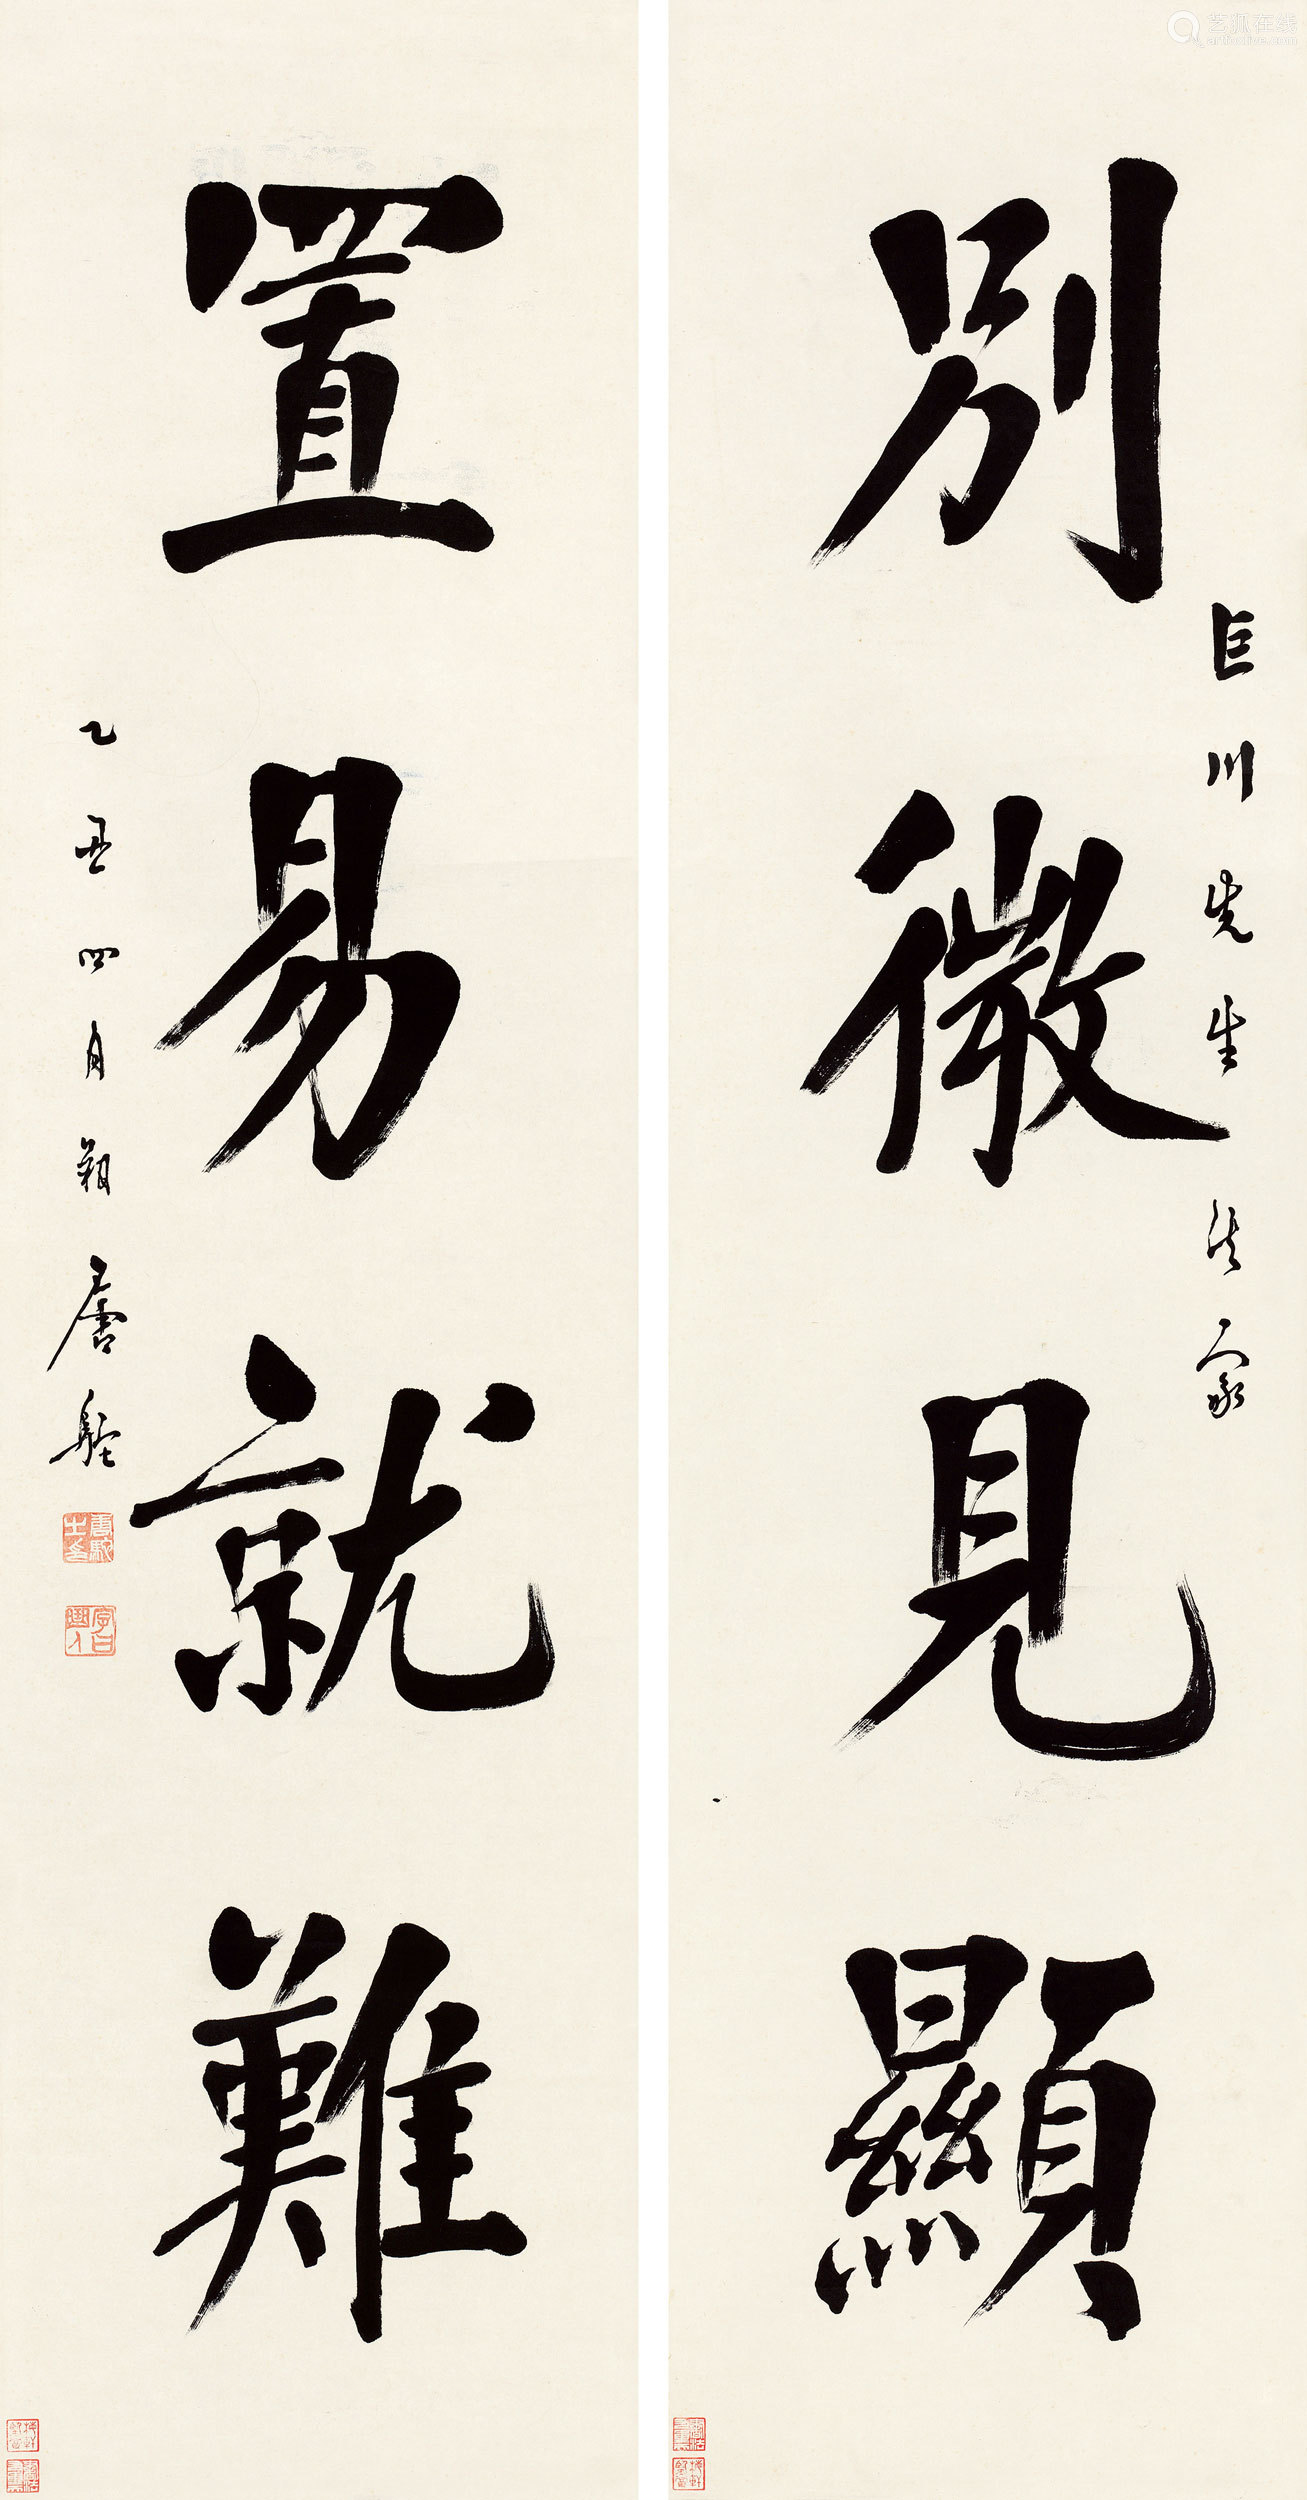 巨川先生法家
別微見顯
置易就難
乙丑四月朔 唐駝
艺狐在线
artfoxlive.com